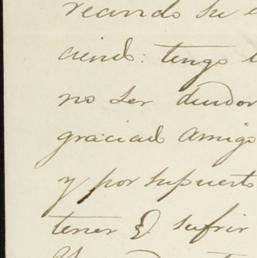 reciendo su
ciend: tengo
no ser deudor
graciad amigo
y por supuesto
tener & sufrir